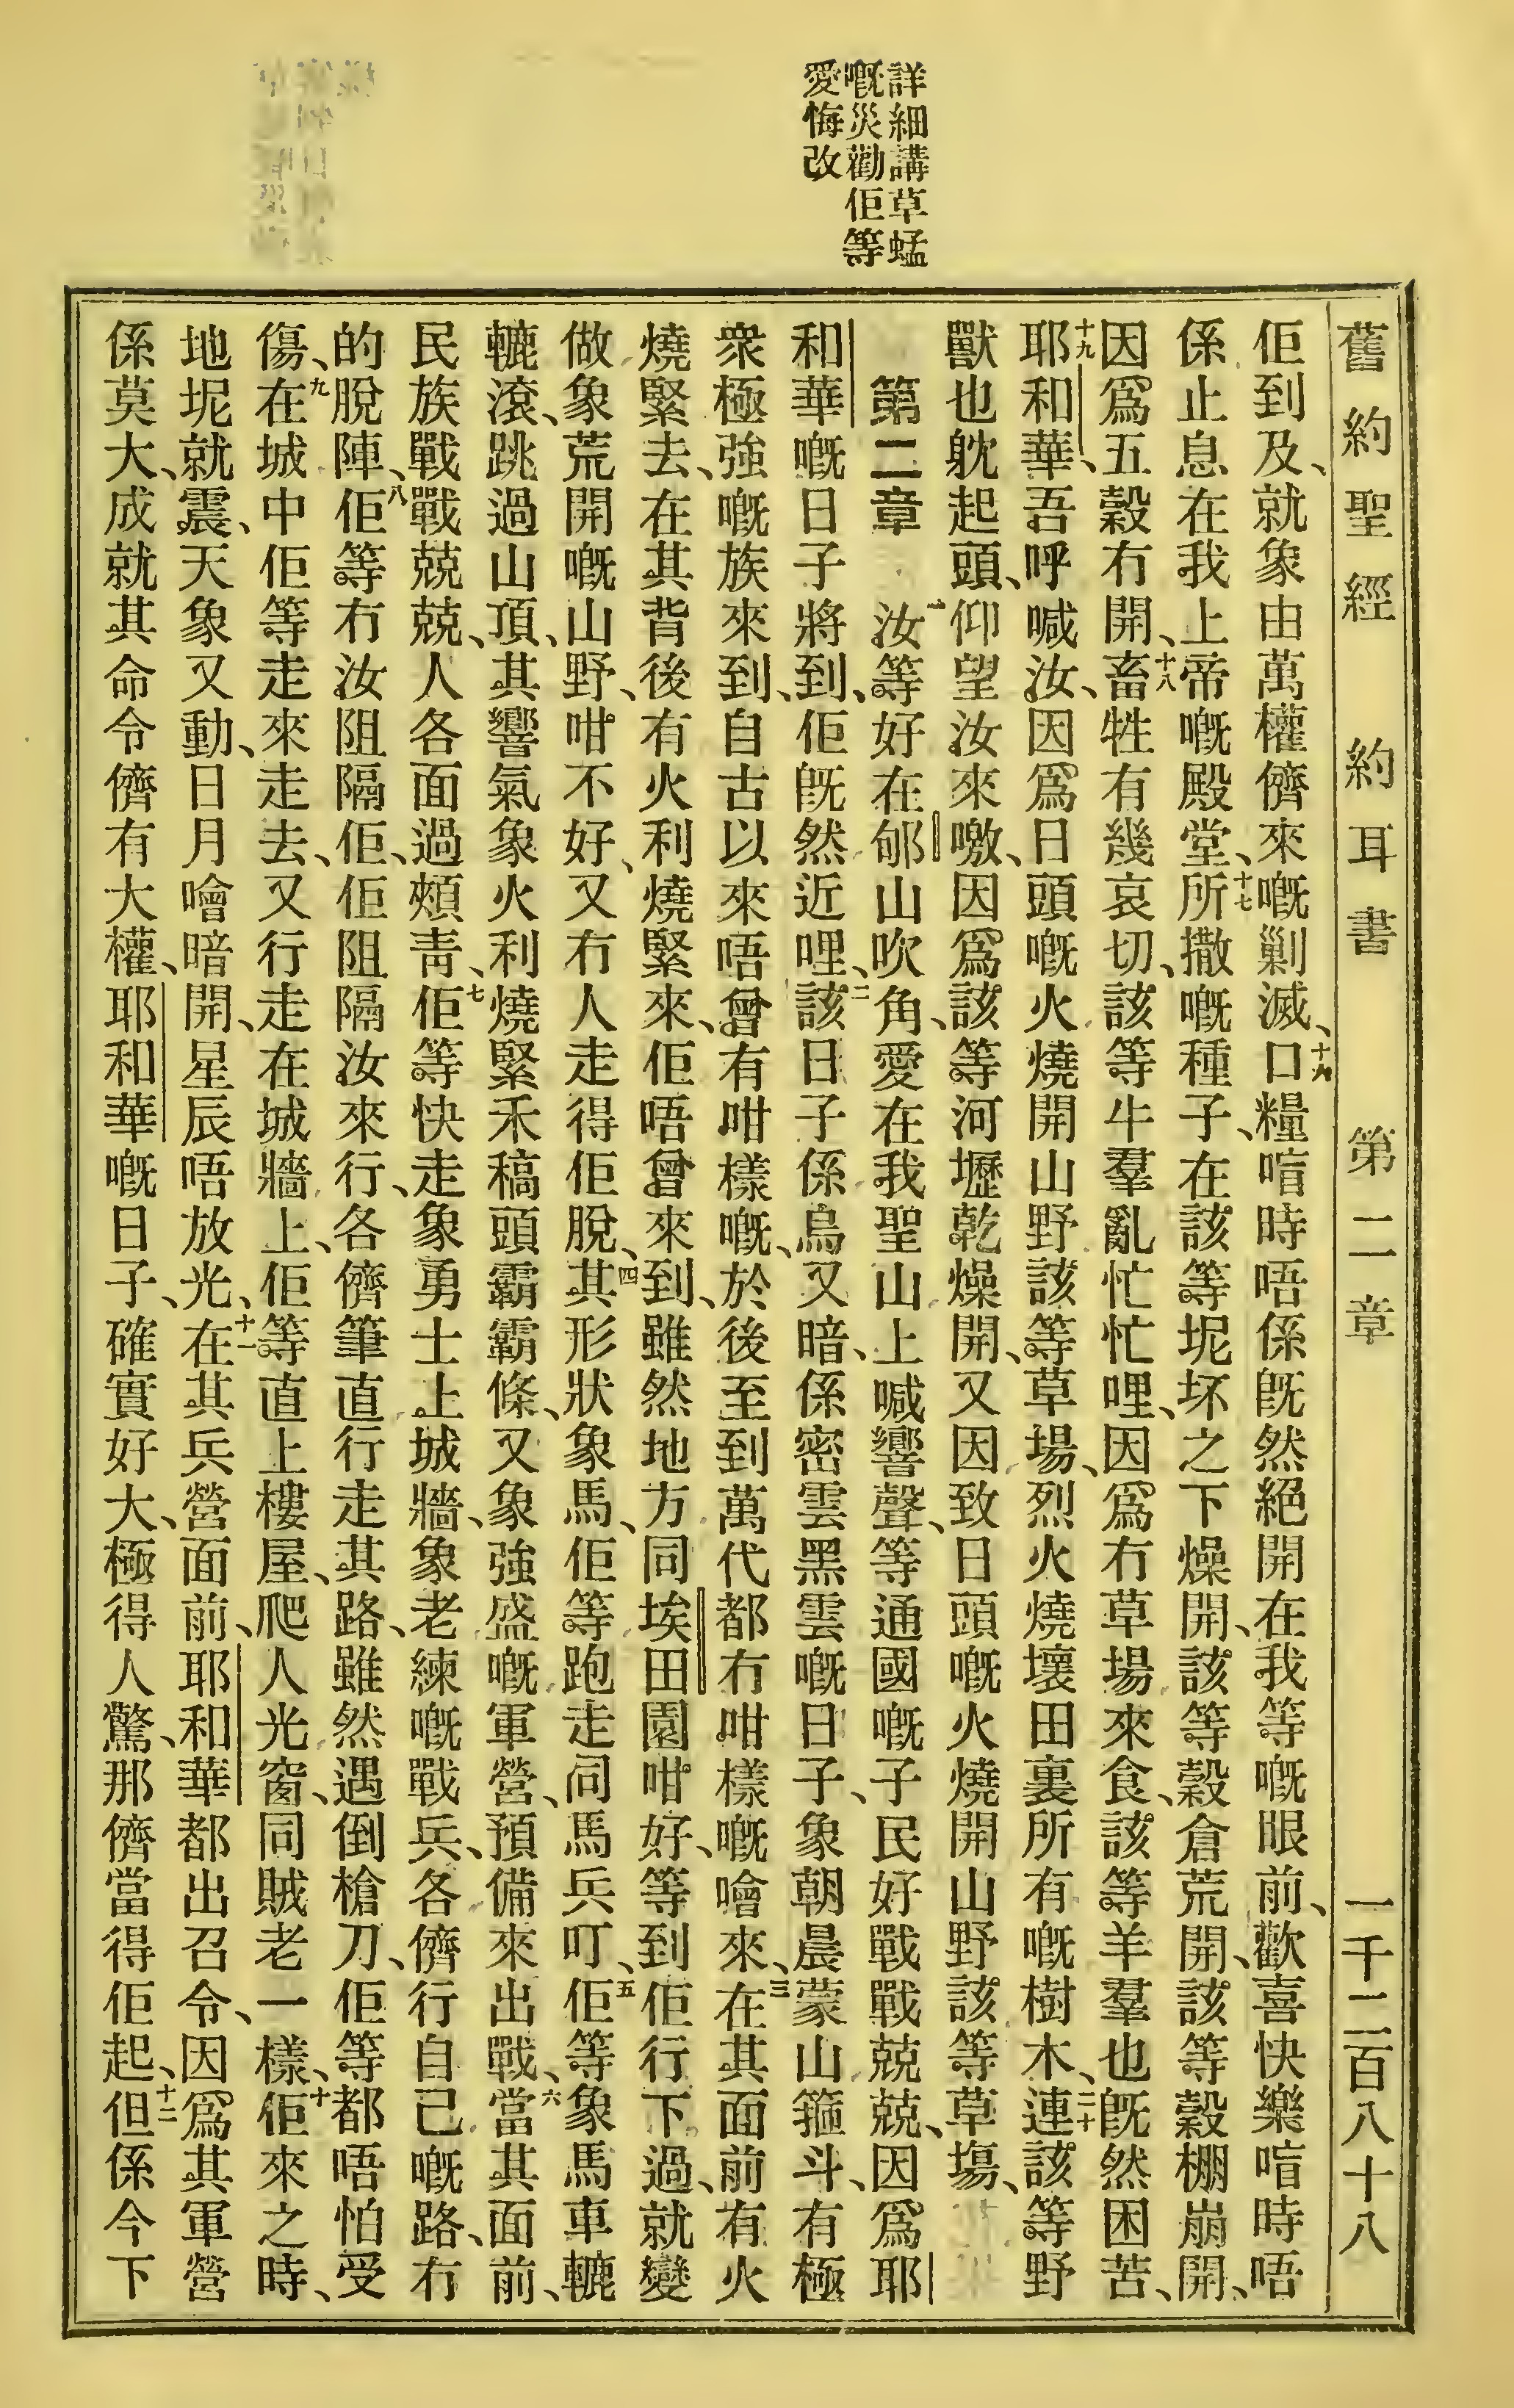 詳細講草蜢
嘅災勸佢等
愛悔改
舊約聖經 約耳書 第二章 一千二百八十八
佢到及、就象由萬權儕來嘅剿滅、十六口糧喧時唔係旣然絕開在我等嘅眼前、歡喜快樂喧時唔
係止息在我上帝嘅殿堂、十七所撒嘅種子、在該等坭坏之下燥開、該等穀倉荒開、該等穀棚崩開、
因爲五穀冇開、十八畜牲有幾哀切、該等牛羣亂忙忙哩、因爲冇草場來食、該等羊羣也旣然困苦、
十九耶和華、吾呼喊汝、因爲日頭嘅火燒開山野該等草場、烈火燒壞田裏所有嘅樹木、二十連該等野
獸也躭起頭、仰望汝來噭、因爲該等河壢乾燥開、又因致日頭嘅火燒開山野該等草場、
第二章 一汝等好在郇山吹角、愛在我聖山上喊響聲、等通國嘅子民好戰戰兢兢、因爲耶
和華嘅日子將到、佢旣然近哩、二該日子係烏又暗、係密雲黑雲嘅日子、象朝晨蒙山箍斗、有極
衆極強嘅族來到、自古以來唔曾有咁樣嘅、於後至到萬代都冇咁樣嘅噲來、三在其面前有火
燒緊去、在其背後有火利燒緊來、佢唔曾來到、雖然地方同埃田園咁好、等到佢行下過、就變
做象荒開嘅山野、咁不好、又冇人走得佢脫、四其形狀象馬、佢等跑走同馬兵叮、五佢等象馬車轆
轆滾、跳過山頂、其響氣象火利燒緊禾稿頭霸霸條、又象強盛嘅軍營、預備來出戰、六當其面前、
民族戰戰兢兢、人各面過頰靑、七佢等快走象勇士上城牆、象老練嘅戰兵、各儕行自己嘅路、冇
的脫陣、八佢等冇汝阻隔佢、佢阻隔汝來行、各儕筆直行走其路、雖然遇倒槍刀、佢等都唔怕受
傷、九在城中佢等走來走去、又行走在城牆上、佢等直上樓屋、爬人光窗、同賊老一樣、十佢來之時、
地坭就震、天象又動、日月噲暗開、星辰唔放光、十一在其兵營面前、耶和華都出召令、因爲其軍營
係莫大、成就其命令儕有大權、耶和華嘅日子、確實好大、極得人驚、那儕當得佢起、十二但係今下